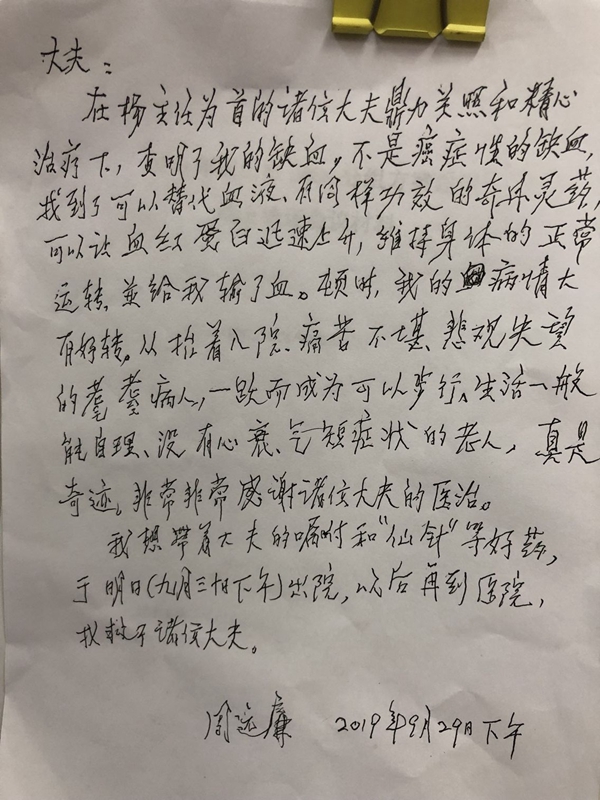 大夫：
在杨主任为首的诸位大夫鼎力关照和精心
治疗下，查明了我的缺血，不是癌症性的缺血，
找到了可以替代血液、有同样功效的奇丹灵药，
可以让血红蛋白迅速上升，維持身体的正常
运转，並给我输了血。顿时，我的病情大
有好转。从抬着入院、痛苦不堪、悲观失望
的耄耋病人，一跃而成为可以步行、生活一般
能自理、没有心衰、气短症状的老人，真是
奇迹，非常非常感谢诸位大夫的医治。
我想带着大夫的嘱咐和“仙针”等好药，
于明日（九月三十日下午）出院，以后再到医院，
找救于诸位大夫。
周远廉 2019年9月29日下午